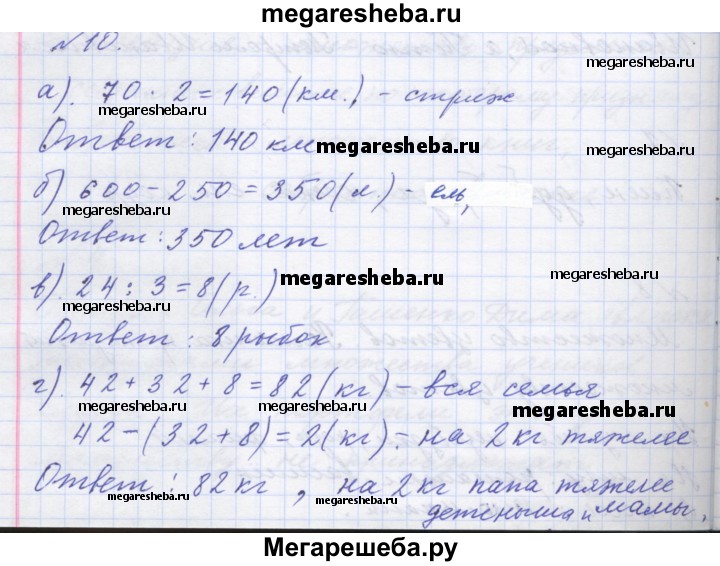 megaresheba.ru
№10.
megaresheba.ru
а). 70 · 2 = 140 (км.) - стриж
megaresheba.ru
Ответ : 140 км
megaresheba.ru
б) 600 - 250 = 350 (л.) - ель,
megaresheba.ru
Ответ : 350 лет
megaresheba.ru
megaresheba.ru
в). 24 : 3 = 8 (р.)
megaresheba.ru
Ответ : 8 рыбок
megaresheba.ru
megaresheba.ru
г). 42 + 32 + 8 = 82 (кг) - вся семья
megaresheba.ru
megaresheba.ru
megaresheba.ru
42 - (32 + 8) = 2 (кг) - на 2 кг тяжелее
megaresheba.ru
Ответ : 82 кг , на 2 кг папа тяжелее
megaresheba.ru
megaresheba.ru
детёныша и мамы.
Мегарешеба.ру